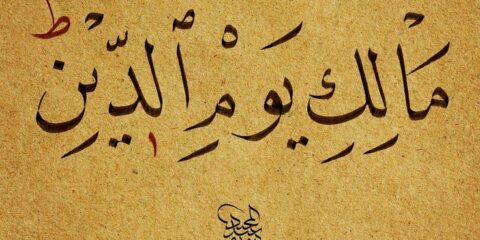 مَالِكِ يَوْمِ ٱلدِّينِ
ط
١